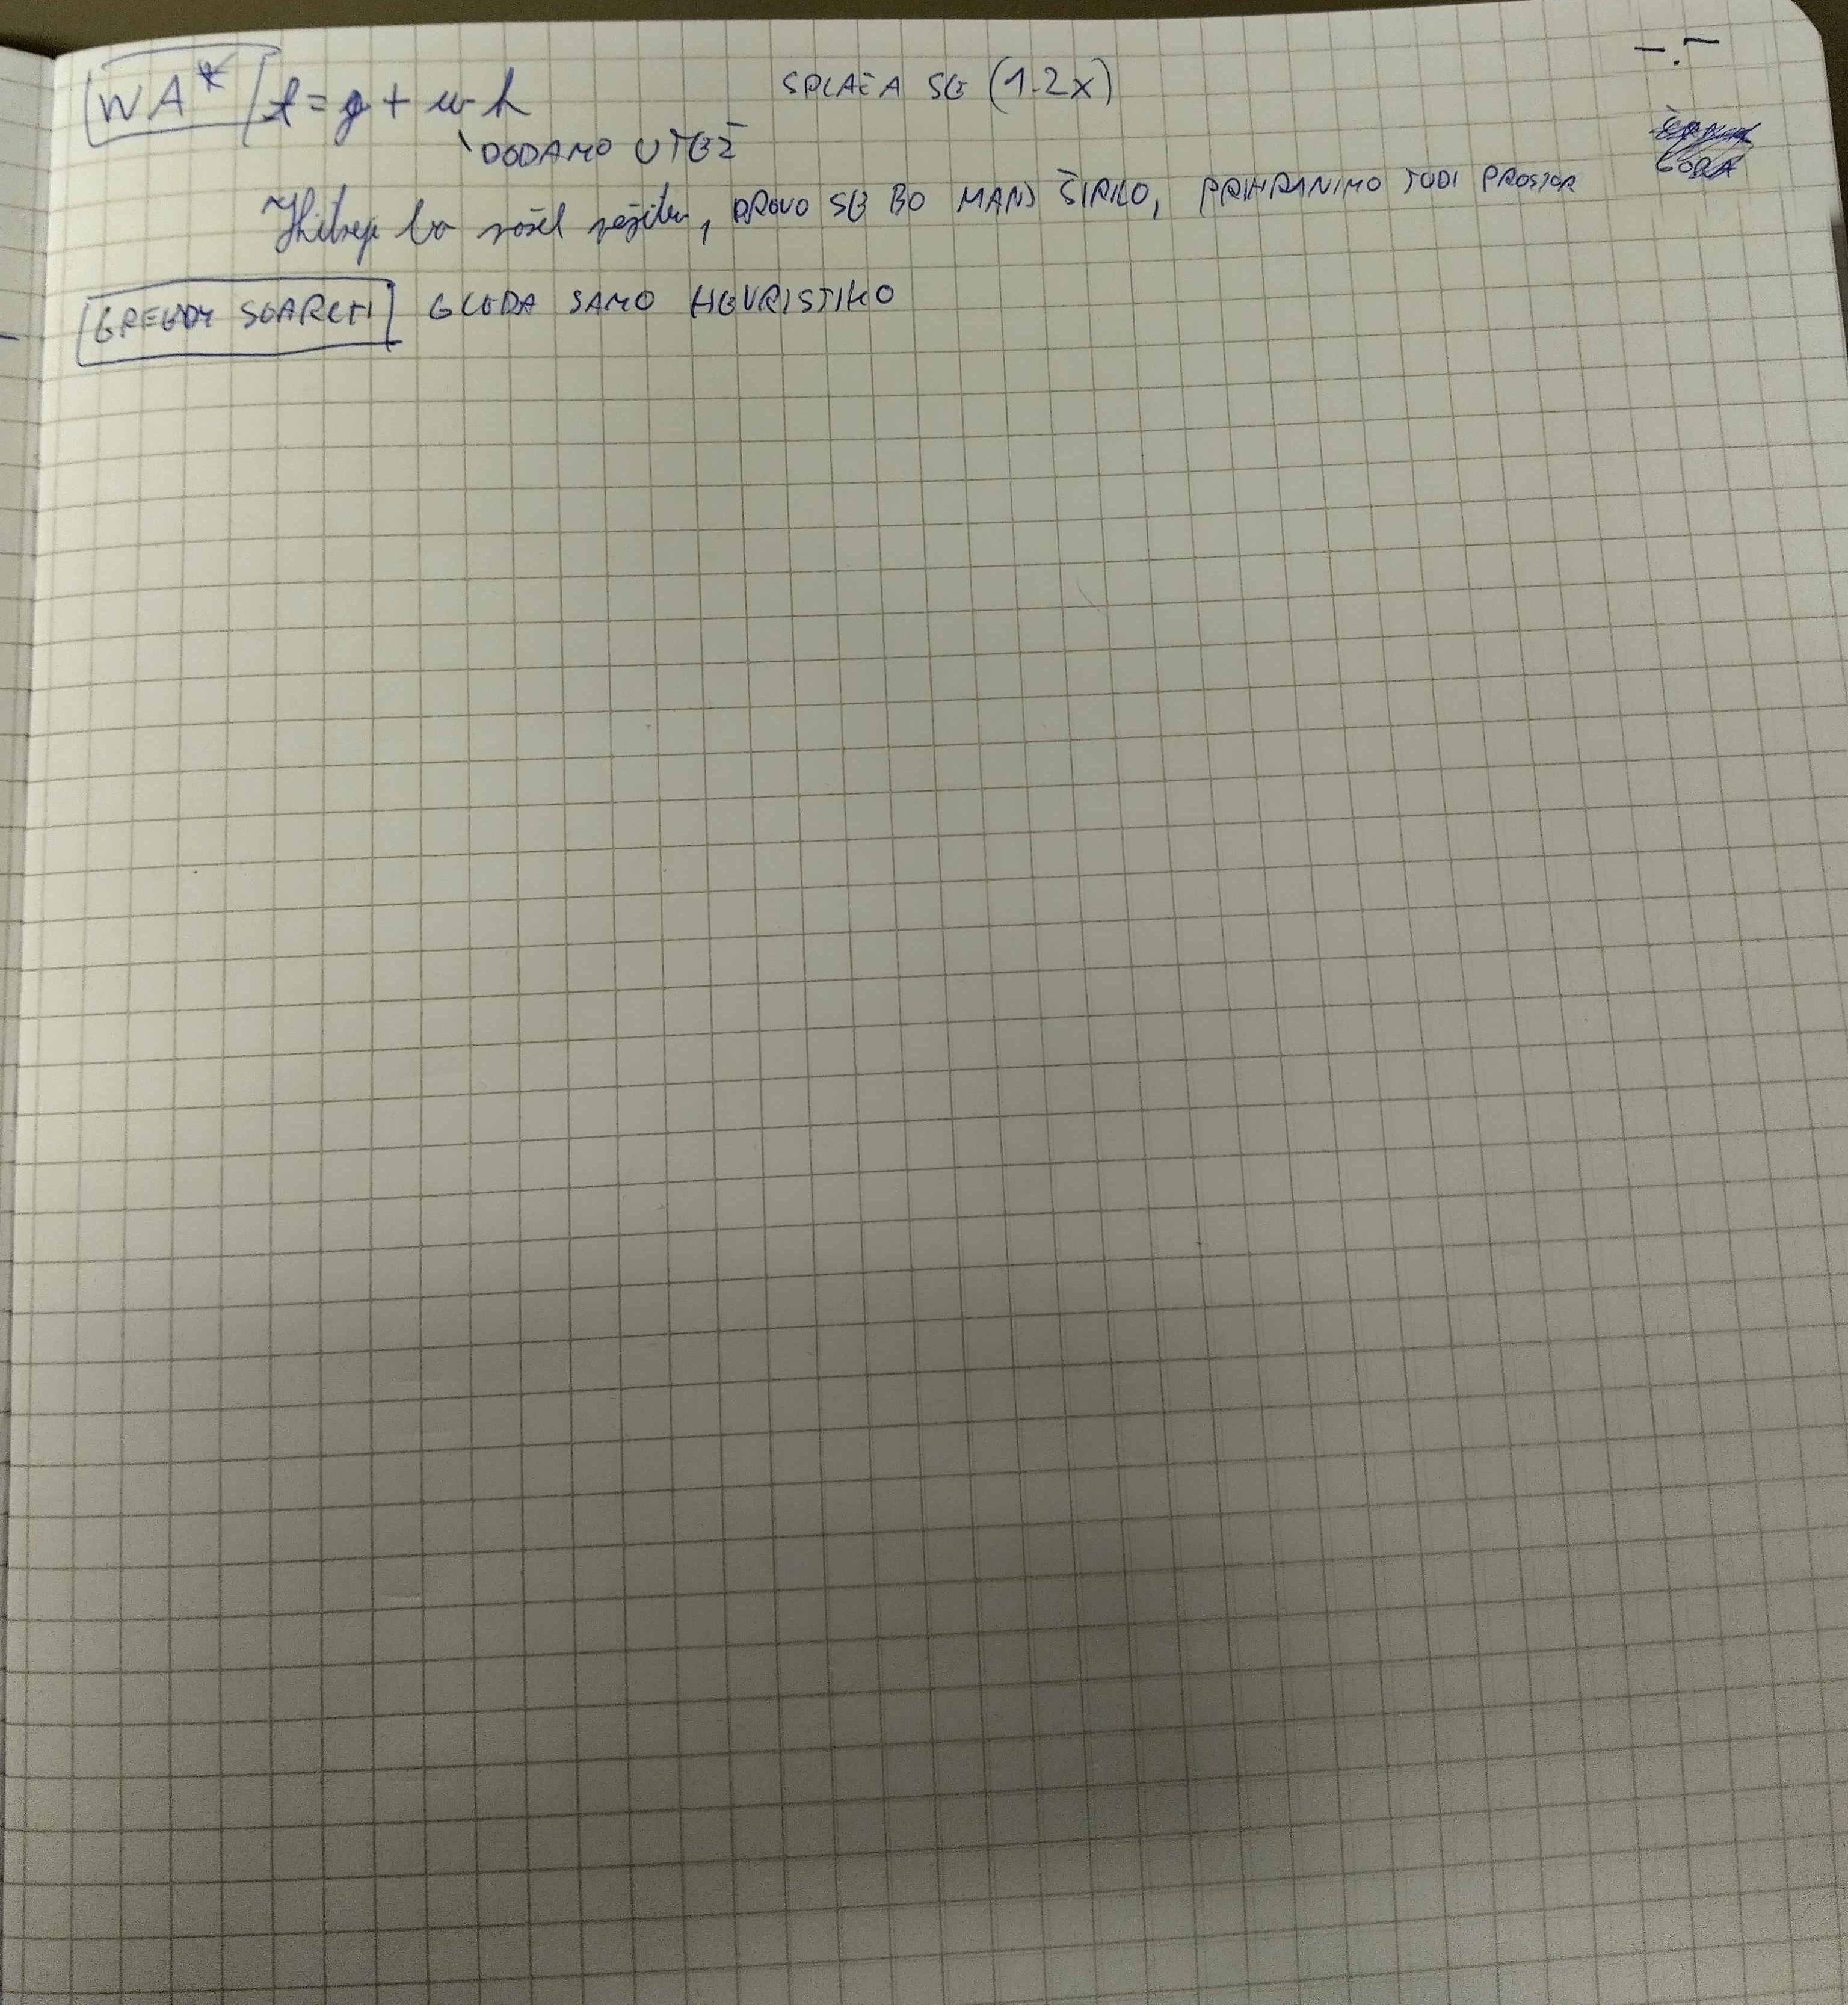 WA* f = g + w·h SPLAČA SE (1-2x)
DODAMO UTEŽ
Hitreje bo našel rešitev, DREVO SE BO MANJ ŠIRILO, PRIHRANIMO TUDI PROSTOR
GREEDY SEARCH GLEDA SAMO HEVRISTIKO